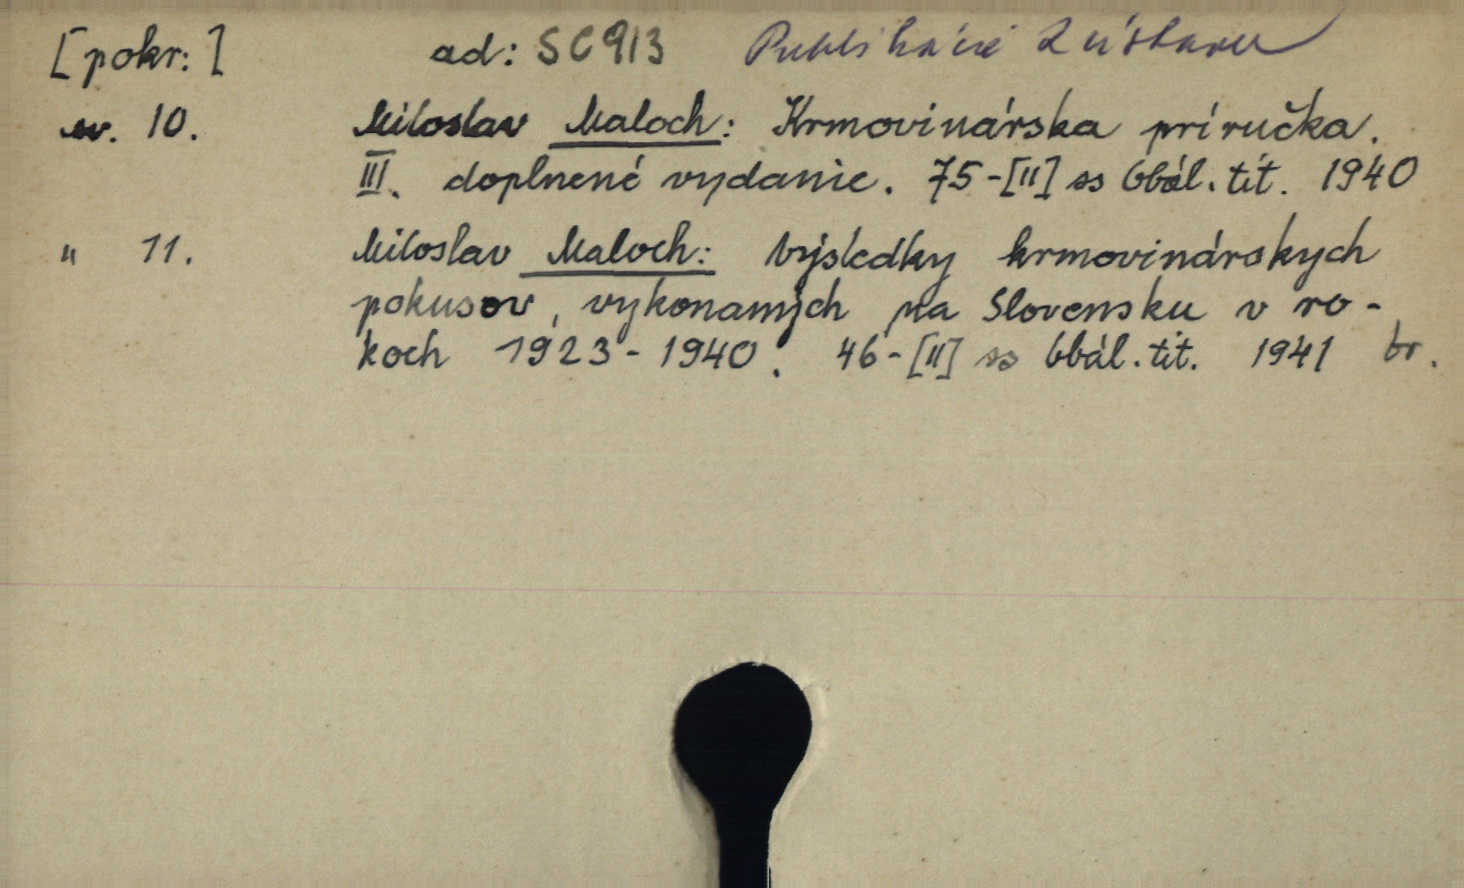 [pokr:] ad: SC913 Publikácie Z ústavu
sv. 10. Miloslav Maloch: Krmovinárska príručka.
III. doplnené vydanie. 75-[II] ss Obál. tit. 1940
" 11. Miloslav Maloch: Výsledky krmovinárskych
pokusov, vykonaných na Slovensku v ro-
koch 1923-1940. 46-[II] ss Obál. tit. 1941 br.